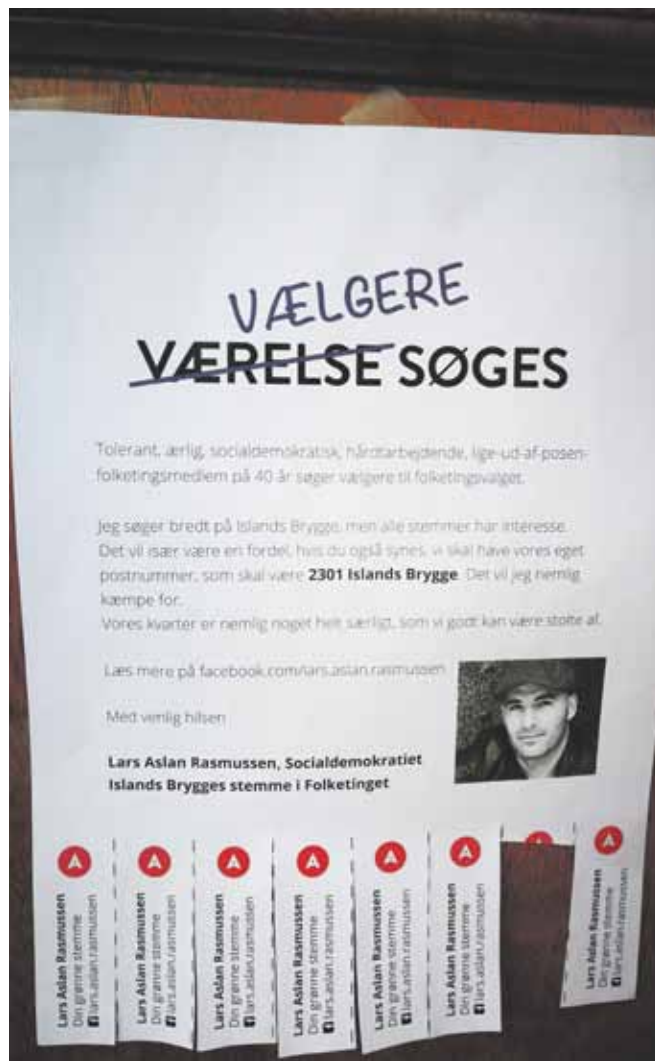 VÆLGERE
VÆRELSE SØGES
Tolerant, ærlig, socialdemokratisk, hårdtarbejdende, lige-ud-af-posen-
folketingsmedlem på 40 år søger vælgere til folketingsvalget.
Jeg søger bredt på Islands Brygge, men alle stemmer har interesse.
Det vil især være en fordel, hvis du også synes, vi skal have vores eget
postnummer, som skal være 2301 Islands Brygge. Det vil jeg nemlig
kæmpe for.
Vores kvarter er nemlig noget helt særligt, som vi godt kan være stolte af.
Læs mere på facebook.com/lars.aslan.rasmussen
Med venlig hilsen
Lars Aslan Rasmussen, Socialdemokratiet
Islands Brygges stemme i Folketinget
A
Lars Aslan Rasmussen
Din grønne stemme
lars.aslan.rasmussen
A
Lars Aslan Rasmussen
Din grønne stemme
lars.aslan.rasmussen
A
Lars Aslan Rasmussen
Din grønne stemme
lars.aslan.rasmussen
A
Lars Aslan Rasmussen
Din grønne stemme
lars.aslan.rasmussen
A
Lars Aslan Rasmussen
Din grønne stemme
lars.aslan.rasmussen
A
Lars Aslan Rasmussen
Din grønne stemme
lars.aslan.rasmussen
A
Lars Aslan Rasmussen
Din grønne stemme
lars.aslan.rasmussen